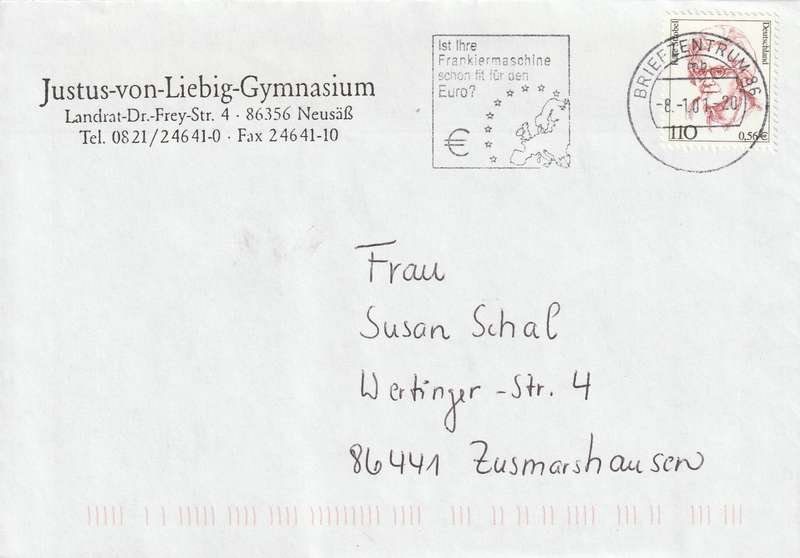 Justus-von-Liebig-Gymnasium
Landrat-Dr.-Frey-Str. 4 · 86356 Neusäß
Tel. 0821/24641-0 · Fax 24641-10
Ist Ihre
Frankiermaschine
schon fit für den
Euro?
€
BRIEFZENTRUM 86
-8.-1.01-20
Deutschland
110
0,56€
Frau
Susan Schal
Wertinger-Str. 4
86441 Zusmarshausen